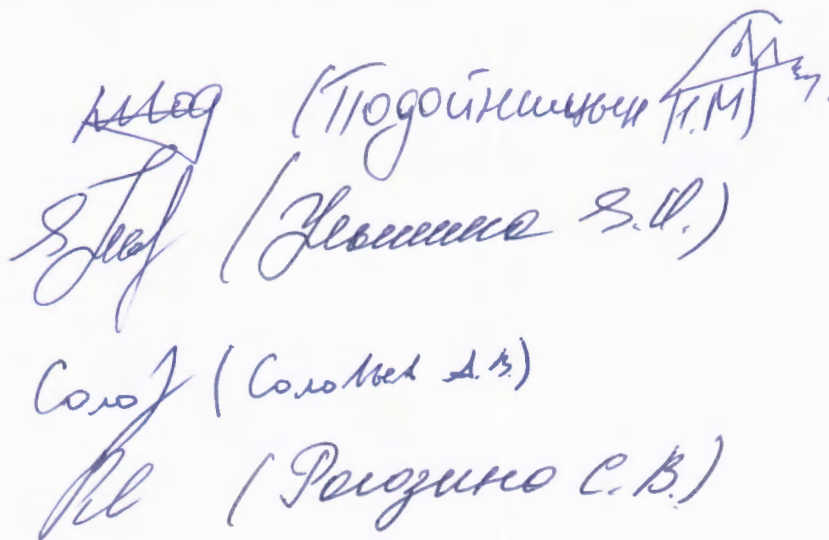 (Подойницын Н.М)
(Ульшина Я.И.)
Соло (Соловьев А.В.)
(Рогозина С.В.)